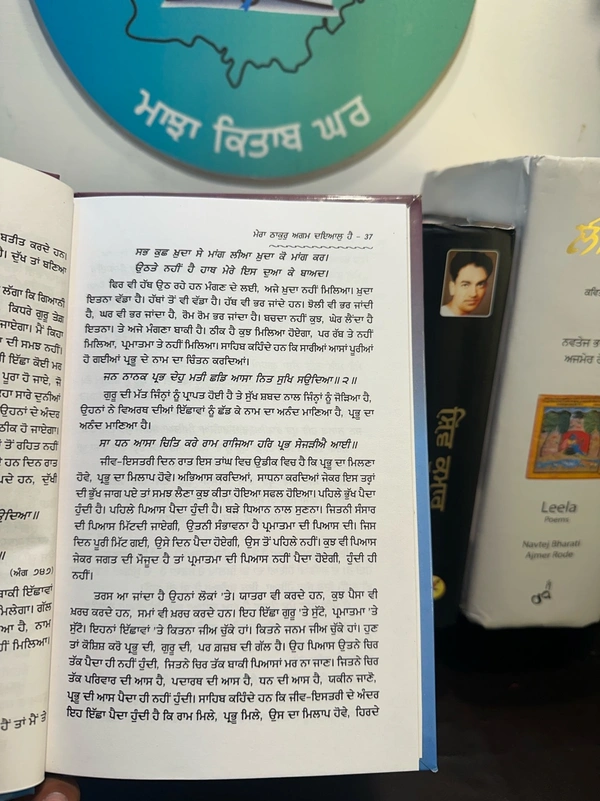 ਮਾਝਾ ਕਿਤਾਬ ਘਰ
ਬਤੀਤ ਕਰਦੇ ਹਨ।
। ਦੁੱਖ ਤਾਂ ਬਣਿਆ
ਲੱਗਾ ਕਿ ਗਿਆਨੀ
ਕਿਧਰੇ ਗੁਰੂ ਤੇਗ
ਜਾਏਗਾ। ਮੈਂ ਕਿਹਾ
ਦੀ ਸਮਝ ਨਹੀਂ।
ੀ ਇੱਛਾ ਕੋਈ ਮਰ
ਪੂਰਾ ਹੋ ਜਾਏ, ਜੋ
ਹਾ ਸਾਰੇ ਦੁਨੀਆਂ
ਉਹਨਾਂ ਦੇ ਅੰਦਰ
ਠੀਕ ਹੋ ਜਾਏਗਾ।
ਤੋਂ ਰਹਿਤ ਨਹੀਂ
ੇ ਹਨ ਦਿਨ ਰਾਤ
ਪਦੇ ਹਨ, ਦੁੱਖੀ
ਉਦਿਆ॥
॥
(ਅੰਗ ੭੪੭)
ਬਾਕੀ ਇੱਛਾਵਾਂ
ਮਿਲੇਗਾ। ਗੱਲ
ਆ ਹੈ, ਨਾਮ
ੀਂ ਮਿਲਿਆ।
ਹੈਂ ਤਾਂ ਮੈਂ ਤੇ
ਮੇਰਾ ਠਾਕੁਰੁ ਅਗਮ ਦਇਆਲੁ ਹੈ - 37
ਸਭ ਕੁਛ ਖ਼ੁਦਾ ਸੇ ਮਾਂਗ ਲੀਆ ਖ਼ੁਦਾ ਕੋ ਮਾਂਗ ਕਰ।
ਉਠਤੇ ਨਹੀਂ ਹੈ ਹਾਥ ਮੇਰੇ ਇਸ ਦੁਆ ਕੇ ਬਾਅਦ।
ਫਿਰ ਵੀ ਹੱਥ ਉਠ ਰਹੇ ਹਨ ਮੰਗਣ ਦੇ ਲਈ, ਅਜੇ ਖ਼ੁਦਾ ਨਹੀਂ ਮਿਲਿਆ। ਖ਼ੁਦਾ
ਇਤਨਾ ਵੱਡਾ ਹੈ। ਹੱਥਾਂ ਤੋਂ ਵੀ ਵੱਡਾ ਹੈ। ਹੱਥ ਵੀ ਭਰ ਜਾਂਦੇ ਹਨ। ਝੋਲੀ ਵੀ ਭਰ ਜਾਂਦੀ
ਹੈ, ਘਰ ਵੀ ਭਰ ਜਾਂਦਾ ਹੈ, ਰੋਮ ਰੋਮ ਭਰ ਜਾਂਦਾ ਹੈ। ਬਚਦਾ ਨਹੀਂ ਕੁਝ, ਘੇਰ ਲੈਂਦਾ ਹੈ
ਇਤਨਾ। ਤੇ ਅਜੇ ਮੰਗਣਾ ਬਾਕੀ ਹੈ। ਠੀਕ ਹੈ ਕੁਝ ਮਿਲਿਆ ਹੋਏਗਾ, ਪਰ ਰੱਬ ਤੇ ਨਹੀਂ
ਮਿਲਿਆ, ਪ੍ਰਮਾਤਮਾ ਤੇ ਨਹੀਂ ਮਿਲਿਆ। ਸਾਹਿਬ ਕਹਿੰਦੇ ਹਨ ਕਿ ਸਾਰੀਆਂ ਆਸਾਂ ਪੂਰੀਆਂ
ਹੋ ਗਈਆਂ ਪ੍ਰਭੂ ਦੇ ਨਾਮ ਦਾ ਚਿੰਤਨ ਕਰਦਿਆਂ।
ਜਨ ਨਾਨਕ ਪ੍ਰਭ ਦੇਹੁ ਮਤੀ ਛਡਿ ਆਸਾ ਨਿਤ ਸੁਖਿ ਸਉਂਦਿਆ॥੨॥
ਗੁਰੂ ਦੀ ਮੱਤ ਜਿੰਨ੍ਹਾਂ ਨੂੰ ਪ੍ਰਾਪਤ ਹੋਈ ਹੈ ਤੇ ਸੁੱਖ ਸ਼ਬਦ ਨਾਲ ਜਿੰਨ੍ਹਾਂ ਨੂੰ ਜੋੜਿਆ ਹੈ,
ਉਹਨਾਂ ਨੇ ਵਿਅਰਥ ਦੀਆਂ ਇੱਛਾਵਾਂ ਨੂੰ ਛੱਡ ਕੇ ਨਾਮ ਦਾ ਅਨੰਦ ਮਾਣਿਆ ਹੈ, ਪ੍ਰਭੂ ਦਾ
ਅਨੰਦ ਮਾਣਿਆ ਹੈ।
ਸਾ ਧਨ ਆਸਾ ਚਿਤਿ ਕਰੇ ਰਾਮ ਰਾਜਿਆ ਹਰਿ ਪ੍ਰਭ ਸੇਜੜੀਐ ਆਈ॥
ਜੀਵ-ਇਸਤਰੀ ਦਿਨ ਰਾਤ ਇਸ ਤਾਂਘ ਵਿਚ ਉਡੀਕ ਵਿਚ ਹੈ ਕਿ ਪ੍ਰਭੂ ਦਾ ਮਿਲਣਾ
ਹੋਵੇ, ਪ੍ਰਭੂ ਦਾ ਮਿਲਾਪ ਹੋਵੇ। ਅਭਿਆਸ ਕਰਦਿਆਂ, ਸਾਧਨਾ ਕਰਦਿਆਂ ਜੇਕਰ ਇਸ ਤਰ੍ਹਾਂ
ਦੀ ਭੁੱਖ ਜਾਗ ਪਏ ਤਾਂ ਸਮਝ ਲੈਣਾ ਕੁਝ ਕੀਤਾ ਹੋਇਆ ਸਫਲ ਹੋਇਆ। ਪਹਿਲੇ ਭੁੱਖ ਪੈਦਾ
ਹੁੰਦੀ ਹੈ। ਪਹਿਲੇ ਪਿਆਸ ਪੈਦਾ ਹੁੰਦੀ ਹੈ। ਬੜੇ ਧਿਆਨ ਨਾਲ ਸੁਣਨਾ। ਜਿਤਨੀ ਸੰਸਾਰ
ਦੀ ਪਿਆਸ ਮਿੱਟਦੀ ਜਾਏਗੀ, ਉਤਨੀ ਸੰਭਾਵਨਾ ਹੈ ਪ੍ਰਮਾਤਮਾ ਦੀ ਪਿਆਸ ਦੀ। ਜਿਸ
ਦਿਨ ਪੂਰੀ ਮਿੱਟ ਗਈ, ਉਸੇ ਦਿਨ ਪੈਦਾ ਹੋਏਗੀ, ਉਸ ਤੋਂ ਪਹਿਲੇ ਨਹੀਂ। ਕੁਝ ਵੀ ਪਿਆਸ
ਜੇਕਰ ਜਗਤ ਦੀ ਮੌਜੂਦ ਹੈ ਤਾਂ ਪ੍ਰਮਾਤਮਾ ਦੀ ਪਿਆਸ ਨਹੀਂ ਪੈਦਾ ਹੋਏਗੀ, ਹੁੰਦੀ ਹੀ
ਨਹੀਂ।
ਤਰਸ ਆ ਜਾਂਦਾ ਹੈ ਉਹਨਾਂ ਲੋਕਾਂ 'ਤੇ। ਯਾਤਰਾ ਵੀ ਕਰਦੇ ਹਨ, ਕੁਝ ਪੈਸਾ ਵੀ
ਖ਼ਰਚ ਕਰਦੇ ਹਨ, ਸਮਾਂ ਵੀ ਖ਼ਰਚ ਕਰਦੇ ਹਨ। ਇਹ ਇੱਛਾ ਗੁਰੂ 'ਤੇ ਸੁੱਟੋ, ਪ੍ਰਮਾਤਮਾ 'ਤੇ
ਸੁੱਟੋ। ਇਹਨਾਂ ਇੱਛਾਵਾਂ 'ਤੇ ਕਿਤਨਾ ਜੀਅ ਚੁੱਕੇ ਹਾਂ। ਕਿਤਨੇ ਜਨਮ ਜੀਅ ਚੁੱਕੇ ਹਾਂ। ਹੁਣ
ਤਾਂ ਕੋਸ਼ਿਸ਼ ਕਰੋ ਪ੍ਰਭੂ ਦੀ, ਗੁਰੂ ਦੀ, ਪਰ ਗ਼ਜ਼ਬ ਦੀ ਗੱਲ ਹੈ। ਉਹ ਪਿਆਸ ਉਤਨੇ ਚਿਰ
ਤੱਕ ਪੈਦਾ ਹੀ ਨਹੀਂ ਹੁੰਦੀ, ਜਿਤਨੇ ਚਿਰ ਤੱਕ ਬਾਕੀ ਪਿਆਸਾਂ ਮਰ ਨਾ ਜਾਣ। ਜਿਤਨੇ ਚਿਰ
ਤੱਕ ਪਰਿਵਾਰ ਦੀ ਆਸ ਹੈ, ਪਦਾਰਥ ਦੀ ਆਸ ਹੈ, ਧਨ ਦੀ ਆਸ ਹੈ, ਯਕੀਨ ਜਾਣੋ,
ਪ੍ਰਭੂ ਦੀ ਆਸ ਪੈਦਾ ਹੀ ਨਹੀਂ ਹੁੰਦੀ। ਸਾਹਿਬ ਕਹਿੰਦੇ ਹਨ ਕਿ ਜੀਵ-ਇਸਤਰੀ ਦੇ ਅੰਦਰ
ਇਹ ਇੱਛਾ ਪੈਦਾ ਹੁੰਦੀ ਹੈ ਕਿ ਰਾਮ ਮਿਲੇ, ਪ੍ਰਭੂ ਮਿਲੇ, ਉਸ ਦਾ ਮਿਲਾਪ ਹੋਵੇ, ਹਿਰਦੇ
ਸ਼ਿਵ ਕੁਮਾਰ
ਨਵਤੇਜ ਭਾ
ਅਜਮੇਰ ਰੋ
Leela
Poems
Navtej Bharati
Ajmer Rode